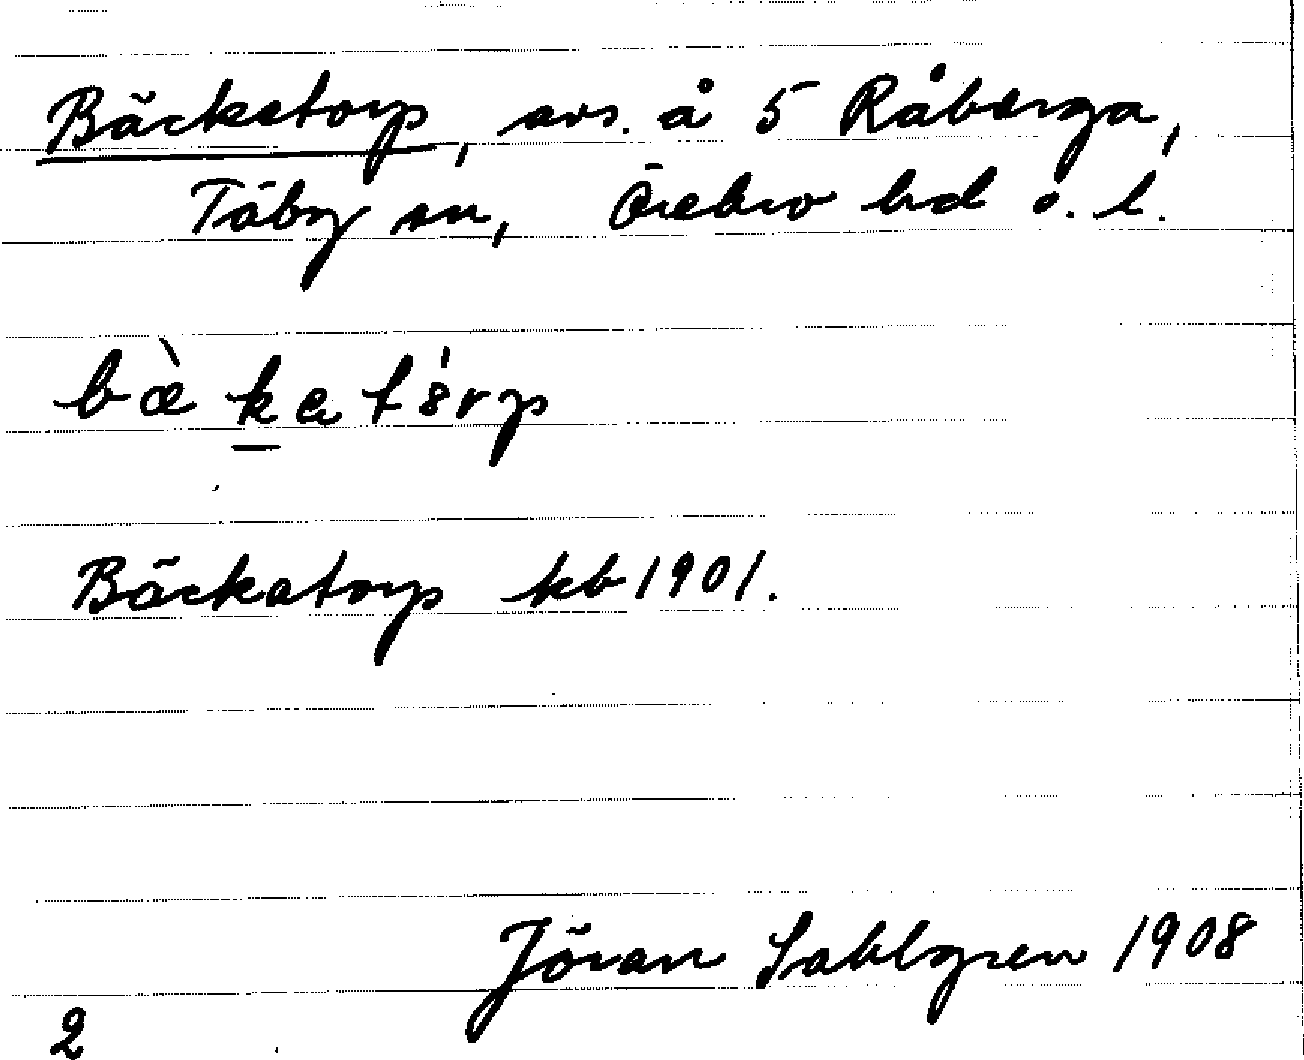 Bäckatorp, avs. å 5 Råberga,
Täby sn, Örebro hd o. l.
bæ̀katȣ́rp
Bäckatorp kb 1901.
Jöran Sahlgren 1908
2